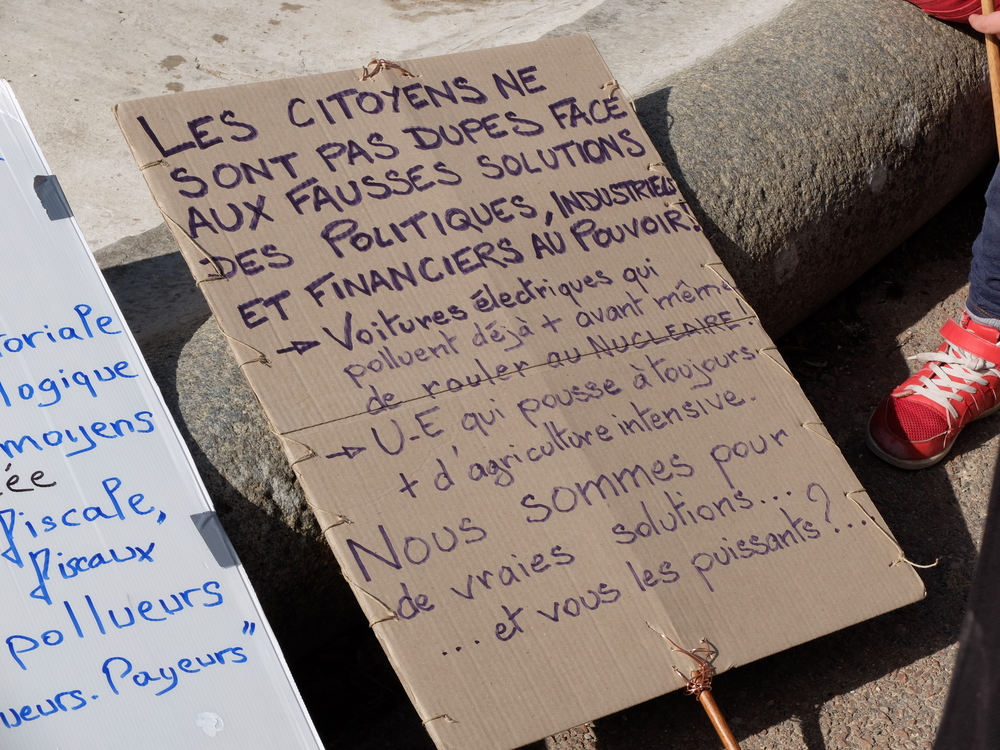 LES CITOYENS NE
SONT PAS DUPES FACE
AUX FAUSSES SOLUTIONS
DES POLITIQUES, INDUSTRIELS
ET FINANCIERS AU POUVOIR!
→ Voitures électriques qui
polluent déjà + avant même
de rouler au NUCLEAIRE!
→ U-E qui pousse à toujours
+ d'agriculture intensive.
Nous sommes pour
de vraies solutions....
...et vous les puissants?...
toriale
logique
moyens
ée
fiscale,
fiscaux
pollueurs
ueurs. Payeurs"